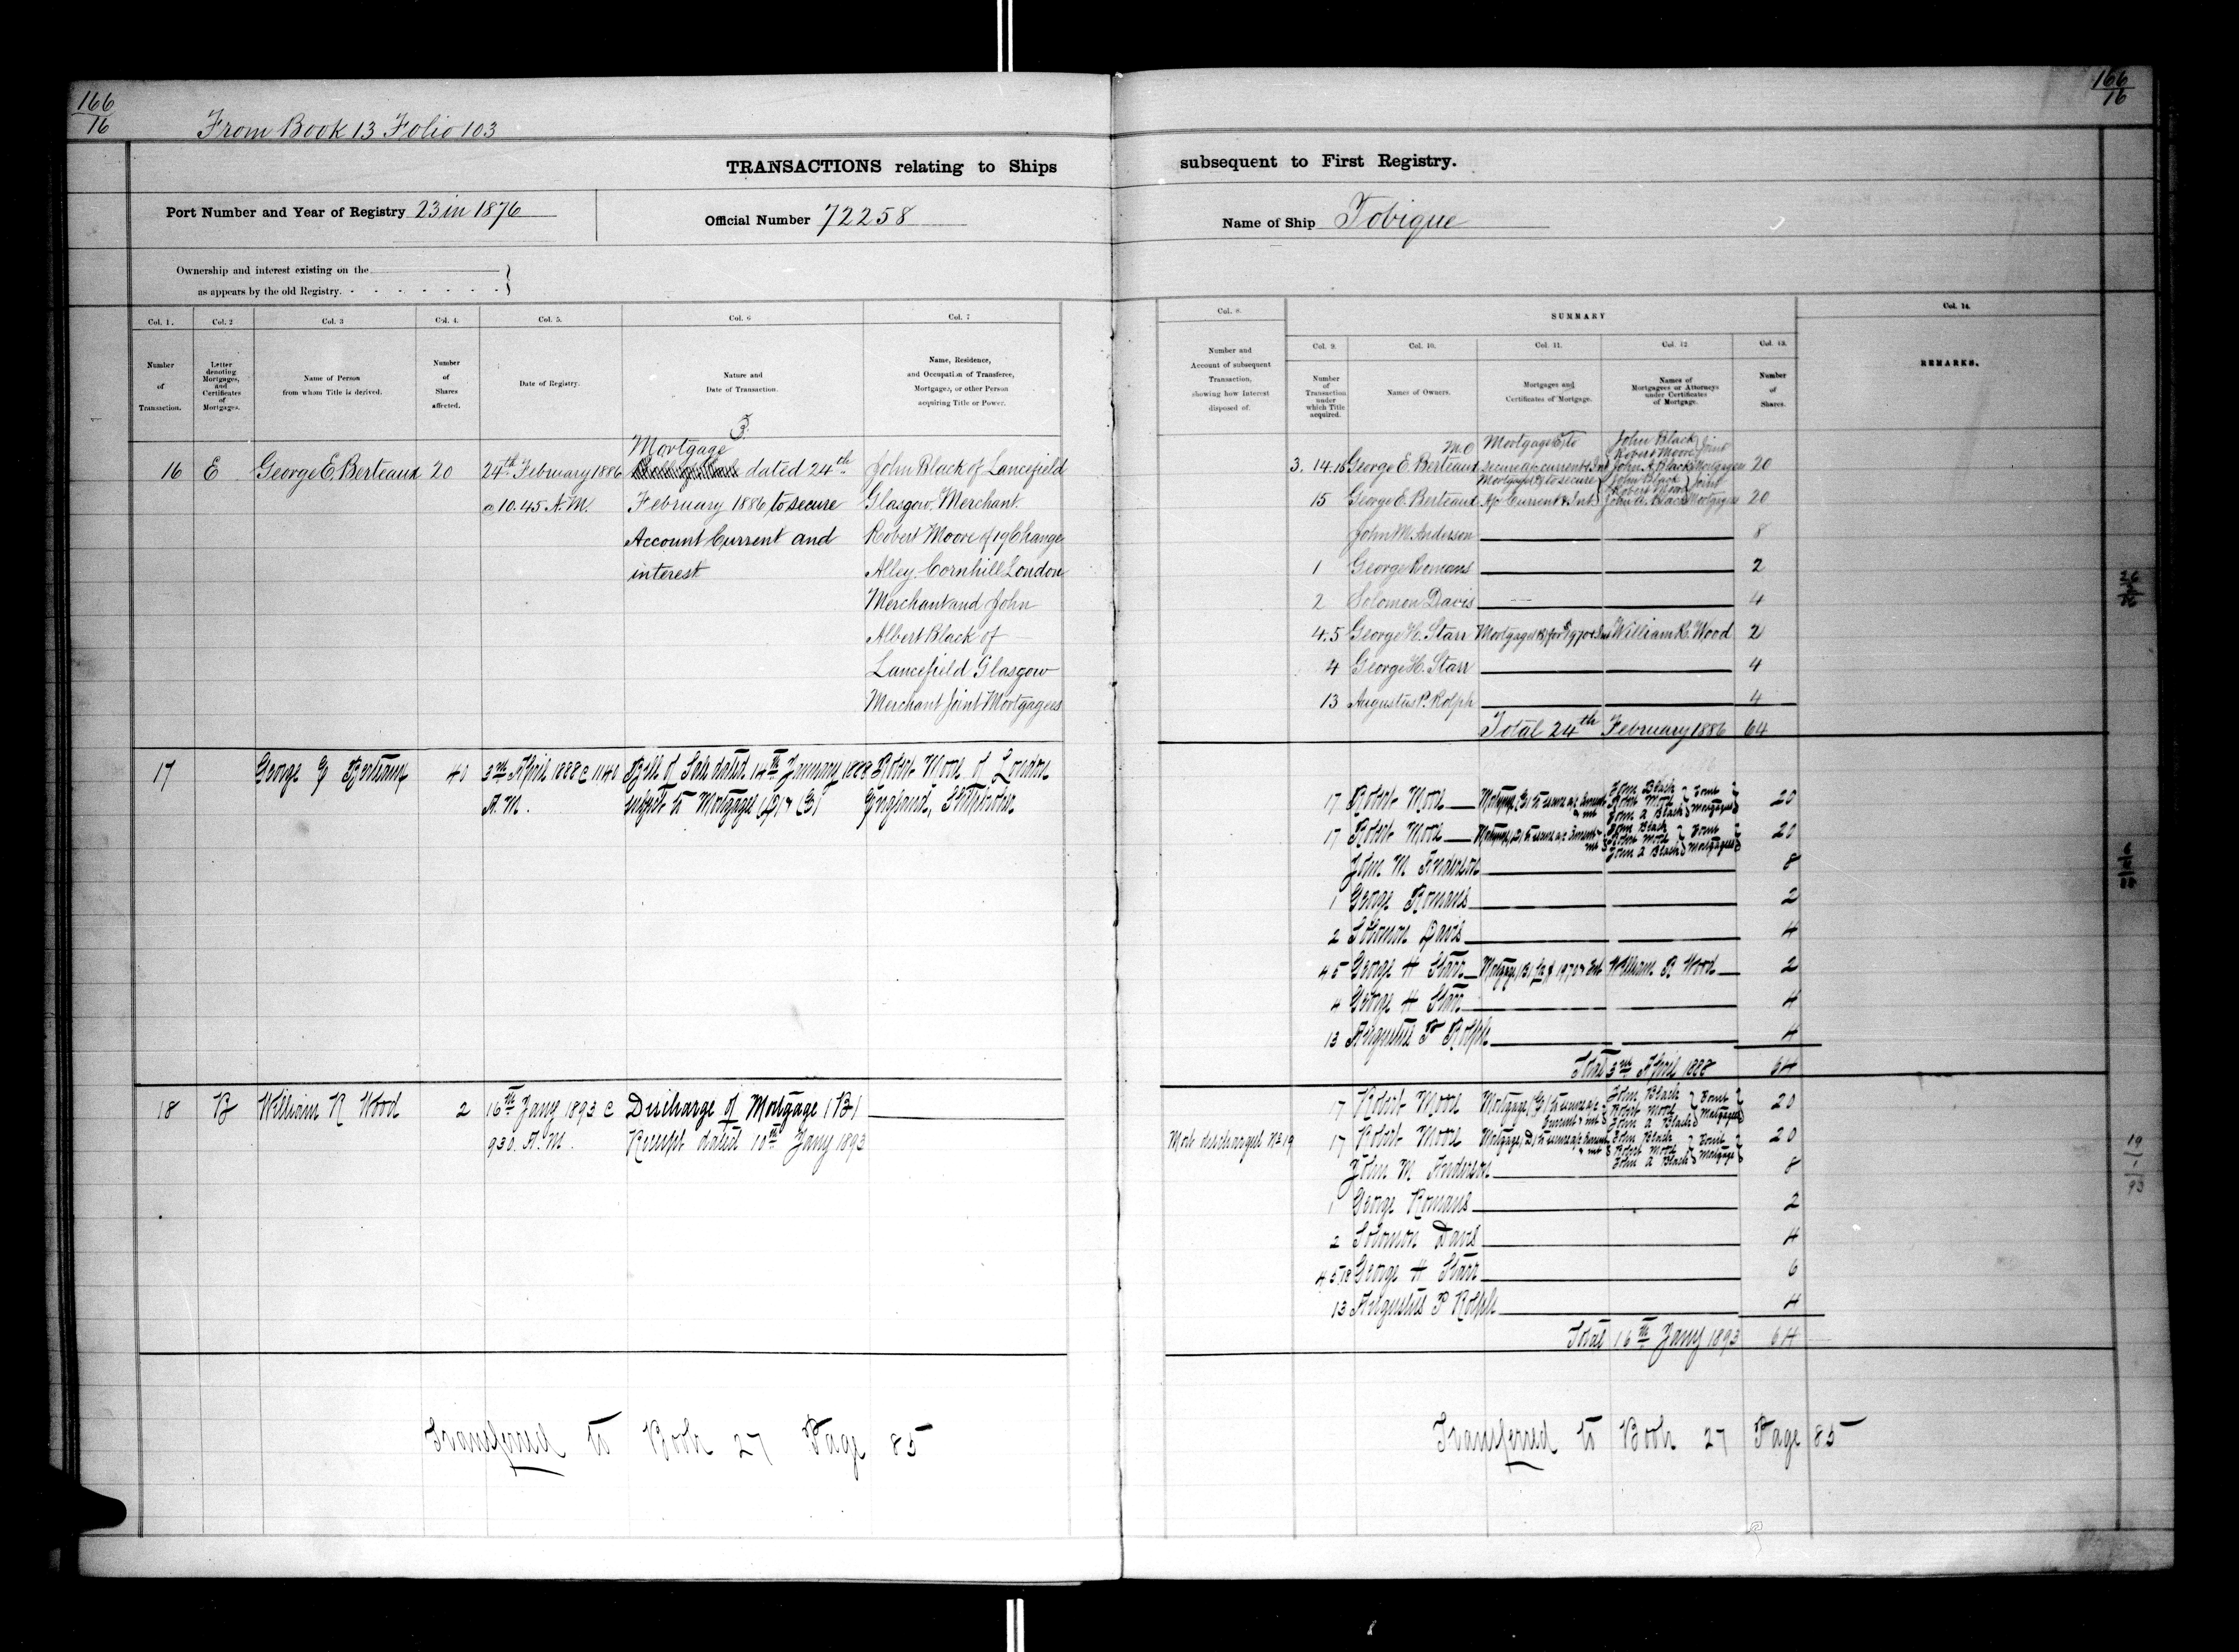 166
16
From Book 13 Folio 103
166
16
TRANSACTIONS relating to Ships subsequent to First Registry.
Port Number and Year of Registry 23 in 1876
Official Number 72258
Name of Ship Tobique
Ownership and interest existing on the
as appears by the old Registry.
Col. 1. Col. 2 Col. 3 Col. 4. Col. 5. Col. 6 Col. 7
Number of Transaction.
Letter denoting Mortgages, and Certificates of Mortgages.
Name of Person from whom Title is derived.
Number of Shares affected.
Date of Registry.
Nature and Date of Transaction.
Name, Residence, and Occupation of Transferee, Mortgagee, or other Person acquiring Title or Power.
Mortgage
16 E George E. Berteaux 20 24th February 1886 dated 24th John Black of Lancefield
@ 10.45 A.M. February 1886 to secure Glasgow. Merchant.
Account Current and Robert Moore of 19 Change
interest Alley. Cornhill London
Merchant and John
Albert Black of
Lancefield Glasgow
Merchant Joint Mortgagees
17 George E Berteaux 40 3rd April 1888 @ 11 40 Bill of Sale dated 14th January 1888 Robert Moore of London
A.M. subject to Mortgages (D) & (E) England, Shipbroker
18 B William R Wood 2 16th Jany 1893 @ Discharge of Mortgage (B)
930. A.M. Receipt dated 10th Jany 1893
Transferred to Book 27 Page 85
Col. 8.
Number and Account of subsequent Transaction, showing how Interest disposed of.
SUMMARY
Col. 9. Col. 10. Col. 11. Col. 12 Col. 13.
Number of Transaction under which Title acquired.
Names of Owners.
Mortgages and Certificates of Mortgage.
Names of Mortgagees or Attorneys under Certificates of Mortgage.
Number of Shares.
Col. 14.
REMARKS.
3. 14. 16 George E. Berteaux Mortgage (E) to secure a/c current & Int John Black Robert Moore John A. Black Joint Mortgagees 20
15 George E. Berteaux Mortgage to secure A/c Current & Int John Black Robert Moore John A. Black Joint Mortgagees 20
John M. Anderson 8
1 George Romans 2
2 Solomon Davis 4
4.5 George H. Starr Mortgage (B) for $1970 & Int William R. Wood 2
4 George H. Starr 4
13 Augustus P. Rolph 4
Total 24th February 1886 64
17 Robert Moore Mortgage (E) to secure a/c Current & int John Black Robert Moore John A Black Joint Mortgagees 20
17 Robert Moore Mortgage (D) to secure a/c Current & int John Black Robert Moore John A Black Joint Mortgagees 20
John M Anderson 8
1 George Romans 2
2 Solomon Davis 4
4 5 George H Starr Mortgage (B) for $1970 & Int William R Wood 2
4 George H Starr 4
13 Augustus P Rolph 4
Total 3rd April 1888 64
17 Robert Moore Mortgage (E) to secure a/c Current & int John Black Robert Moore John A Black Joint Mortgagees 20
Mort discharged No 19 17 Robert Moore Mortgage (D) to secure a/c Current & int John Black Robert Moore John A Black Joint Mortgagee 20
John M Anderson 8
1 George Romans 2
2 Solomon Davis 4
4.5.18 George H Starr 6
13 Augustus P Rolph 4
Total 16th Jany 1893 64
Transferred to Book 27 Page 85
19
1
93